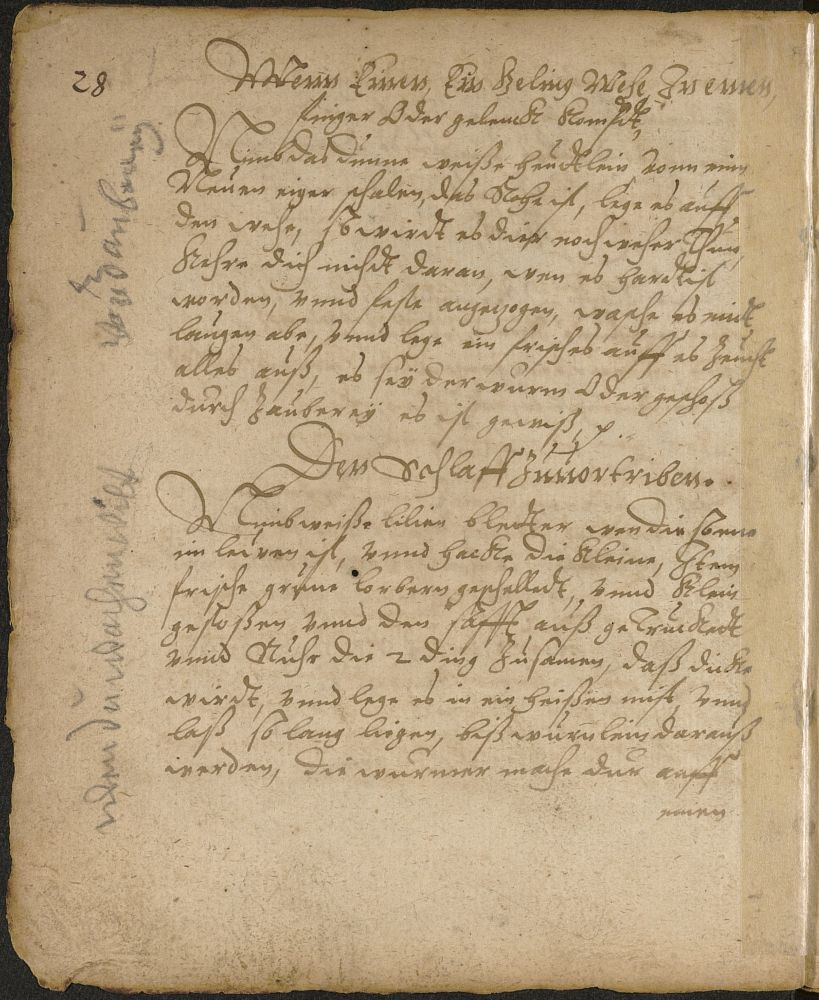 28
Wenn Einen, Ein Zeling Wehe Zu einen,
finger Oder gelenck kompdt,
Nimb das dünne weiße heudtlein vonn einn
Neuen eiger schalen, das Rohe ist, lege es auff
den wehe, so wirdt es dier noch weher Thun,
kehre dich nichdt daran, wen es hardt ist
worden, vnnd feste angezogen, wasche es mit
laugen abe, vnnd lege ein frisches auff es Zeucht
alles auß, es seÿ der wurm Oder geschoß
durch Zauberey es ist gewiß, p.
Den Schlaff Zuuortriben.
Nimb weiße lilien bletter wen die sonne
im leiwen ist, vnnd hacke die kleine, Item
frische grüne lorbern geschelledt, vnnd klein
gestoßen vnnd den safft auß getruckedt
vnnd Ruhr die 2 ding Zusamen, daß dicke
wirdt, vnnd lege es in ein heißen mist, vnnd
laß so lang liegen, biß würmlein darauß
werden, die wurmer mache dur auff
einen
Vor Zauberey
wen du wachen wilt